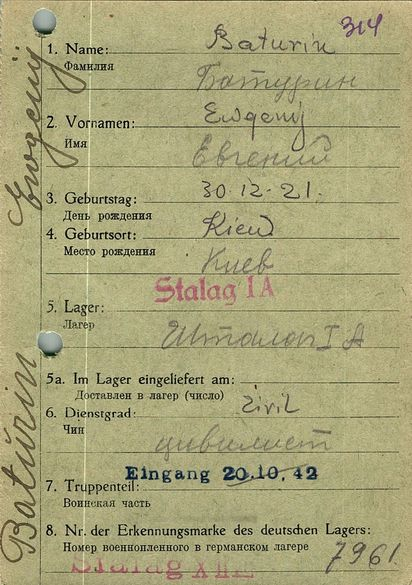 314
1. Name: Baturin
Фамилия Батурин
2. Vornamen: Ewgenij
Имя Евгений
3. Geburtstag: 30.12.21.
День рождения
4. Geburtsort: Kiew
Место рождения Киев
Stalag IA
5. Lager:
Лагерь Шталаг IA
5a. Im Lager eingeliefert am:
Доставлен в лагерь (число)
6. Dienstgrad: Zivil
Чин цивилист
Eingang 20.10.42
7. Truppenteil:
Воинская часть
8. Nr. der Erkennungsmarke des deutschen Lagers:
Номер военнопленного в германском лагере 7961
Stalag
Baturin Ewgenij